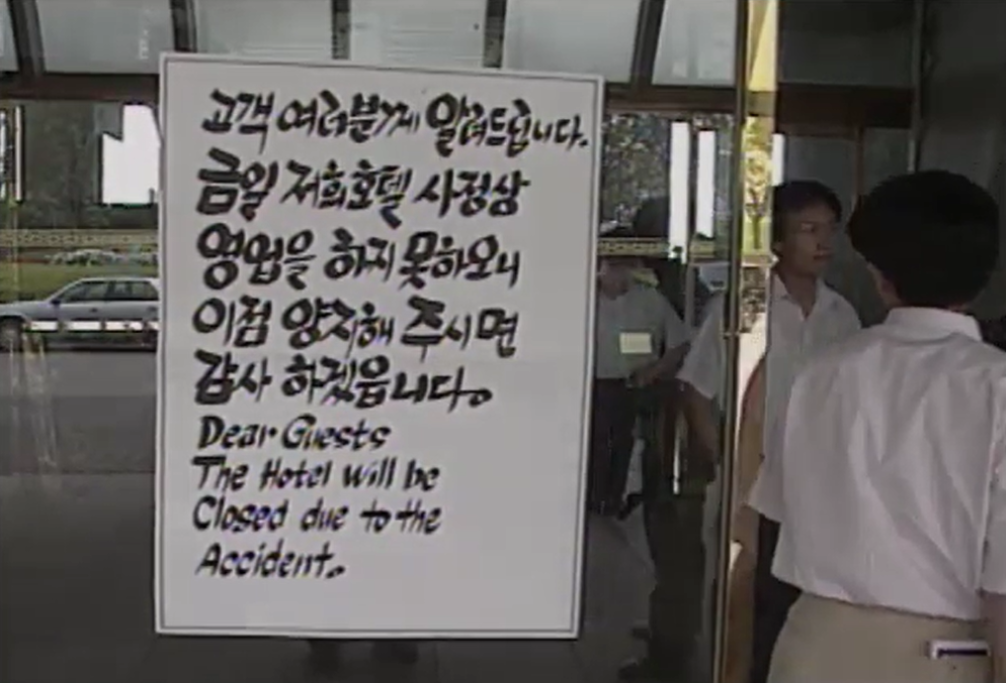 고객 여러분께 알려드립니다.
금일 저희호텔 사정상
영업을 하지 못하오니
이점 양지해 주시면
감사 하겠읍니다.
Dear Guests
The Hotel will be
Closed due to the
Accident.